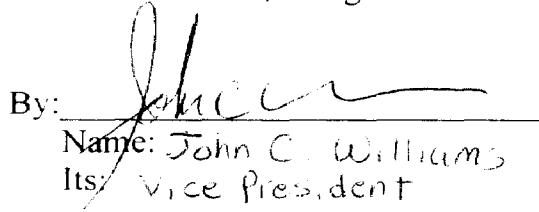 By: John C
Name: John C. Williams
Its: Vice President